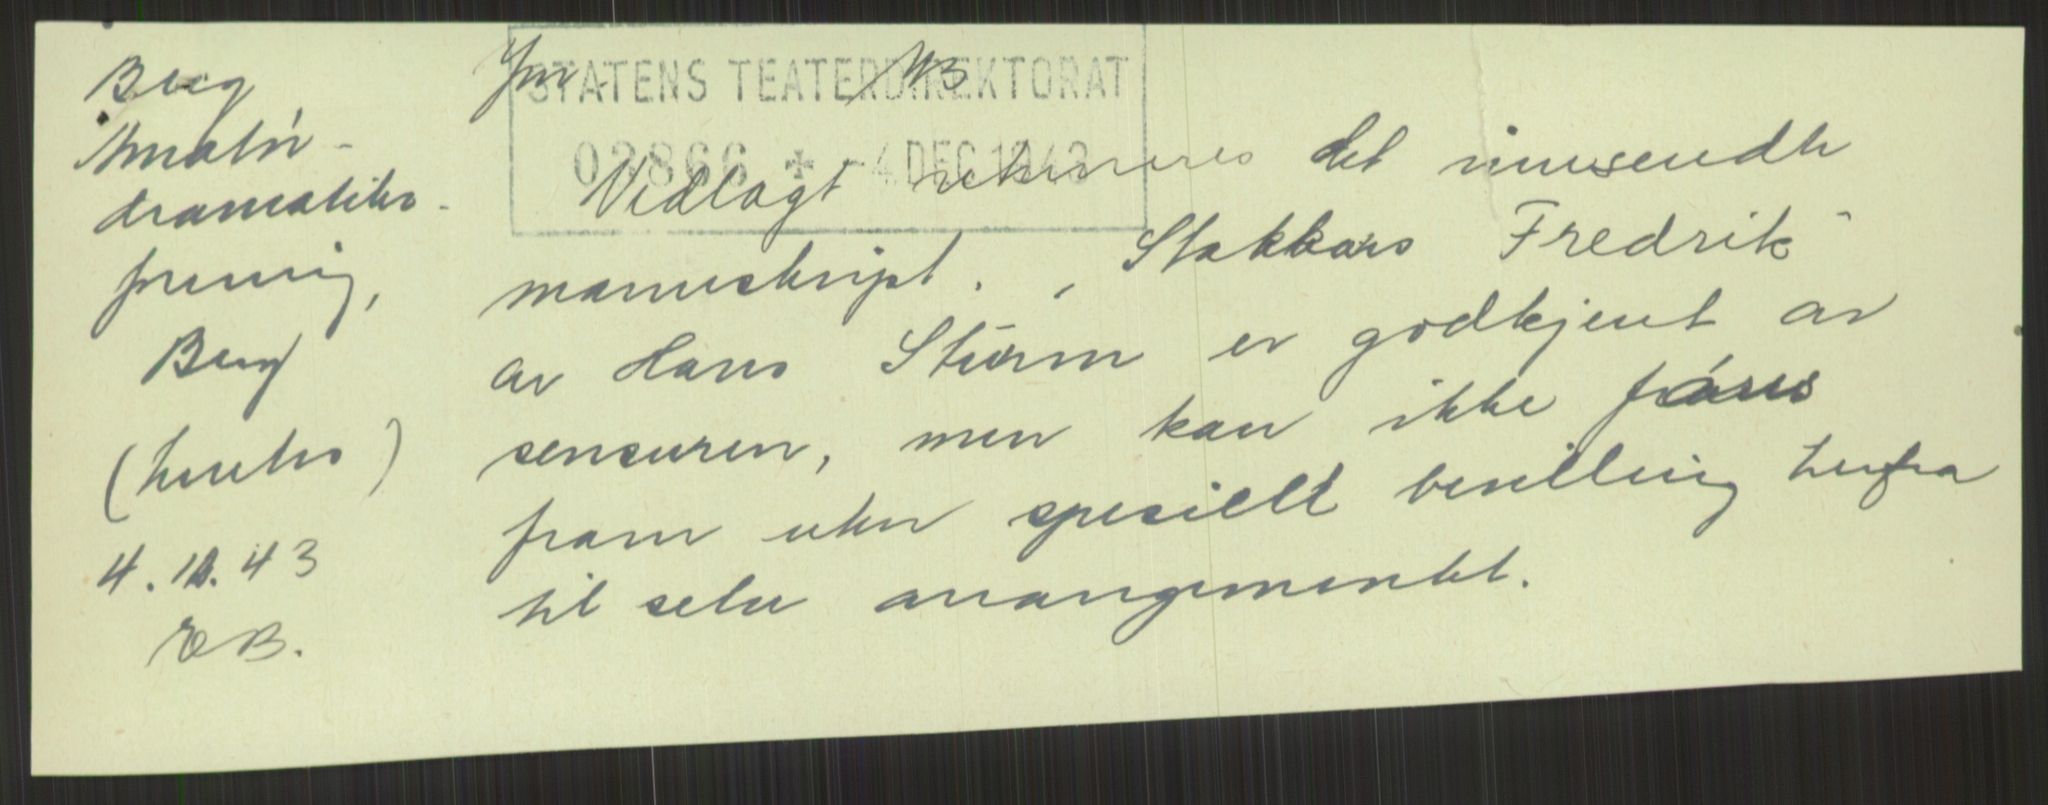 Berg
Amatør-
dramatiske
forening,
Berg
4.12.43
EB.
STATENS TEATERDIREKTORAT
02866 + -4.DEC.1943
Vedlagt returneres det innsendte
manuskript. „Stakkars Fredrik"
av Hans Stürm er godkjent av
sensuren, men kan ikke føres
fram uten spesiell bevilling herfra
til selve arrangementet.